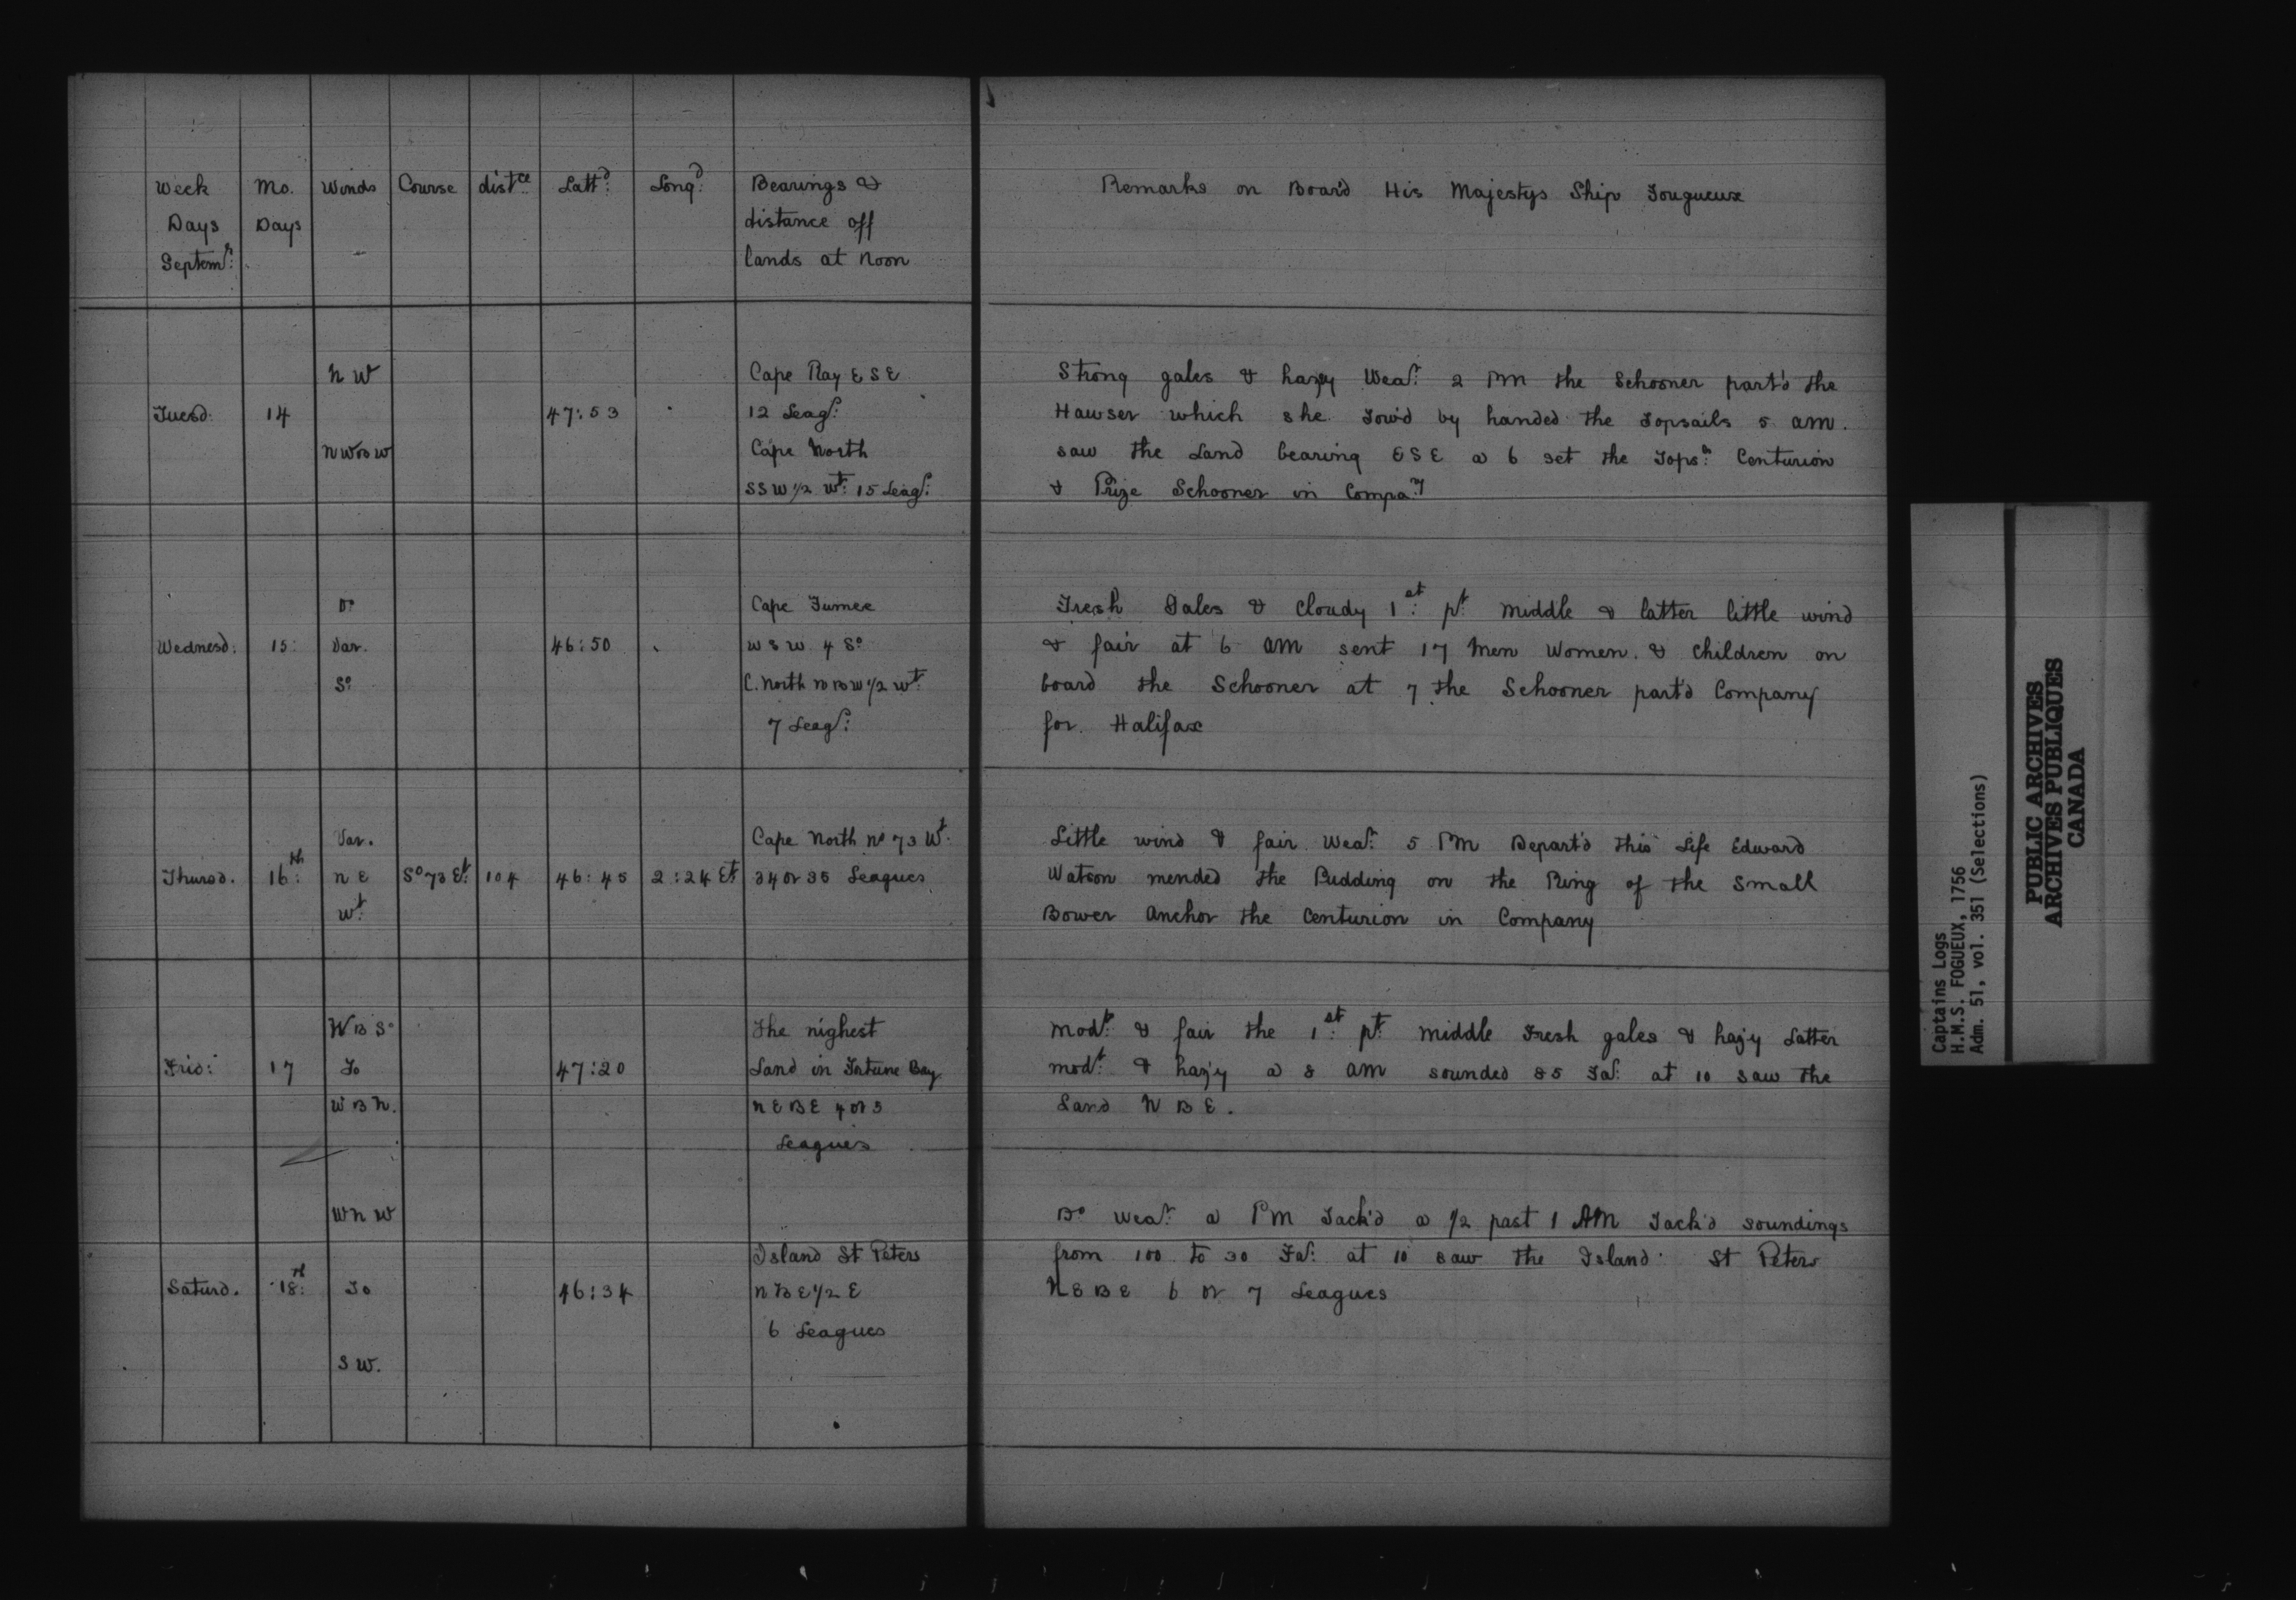 Week Mo. Winds Course distce Lattd: Longd: Bearings &
Days Days distance off
Septemr: lands at Noon
Remarks on Board His Majestys Ship Fougueux
N W Cape Ray E S E
Tuesd. 14 47:53 12 Leags:
NWBW Cape North
SSW 1/2 Wt: 15 Leags:
Strong gales & hazy Wear: 2 PM the Schooner part'd the
Hawser which she Tow'd by handed the Topsails 5 am.
saw the Land bearing ESE a 6 set the Topsls: Centurion
& Prize Schooner in Compay
Do Cape Fumee
Wednesd: 15: Var. 46:50 W S W 4 So
So C. North NBW 1/2 Wt:
7 Leags:
Fresh Gales & Cloudy 1st: pt: Middle & latter little wind
& fair at 6 AM sent 17 Men Women. & Children on
board the Schooner at 7 the Schooner part'd Company
for Halifax
Var. Cape North No 73 Wt:
Thursd. 16th: N E So 73 Et: 104 46:45 2:24 Et 34 or 35 Leagues
Wt:
Little wind & fair Wear: 5 PM Depart'd this Life Edward
Watson mended the Pudding on the Ring of the Small
Bower Anchor the Centurion in Company
W B So The nighest
Frid: 17 To 47:20 Land in Fortune Bay
W B N. N E B E 4 or 5
Leagues
Modt: & fair the 1st: pt: Middle Fresh gales & haz'y Latter
modt: & haz'y a 8 AM sounded 85 Fa: at 10 saw the
Land N B E.
W N W
Island St Peters
Saturd. 18th: To 46:34 N B E 1/2 E
6 Leagues
S W.
Do Wear: a PM Tack'd a 1/2 past 1 AM Tack'd soundings
from 100 to 30 Fa: at 10 saw the Island St Peters
N E B E 6 or 7 Leagues
Captains Logs
H.M.S. FOGUEUX, 1756
Adm. 51, vol. 351 (Selections)
PUBLIC ARCHIVES
ARCHIVES PUBLIQUES
CANADA